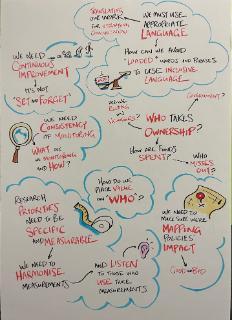 TRANSLATING
OUR WORK
WE MUST USE
APPROPRIATE
LANGUAGE
HOW CAN WE AVOID
"LOADED" WORDS AND PHRASES
TO USE INCLUSIVE
LANGUAGE
WE NEED
CONTINUOUS
IMPROVEMENT
IT'S NOT
"SET AND FORGET"
GOVERNMENT?
WE NEED
CONSISTENCY
OF MONITORING
WHAT
MONITORING
AND HOW?
WHO TAKES
OWNERSHIP?
HOW ARE FUNDS
SPENT?
WHO
MISSES
OUT?
HOW DO WE
PLACE VALUE
ON "WHO"?
RESEARCH
PRIORITIES
NEED TO BE
SPECIFIC
AND MEASURABLE
WE NEED TO
HARMONISE
MEASUREMENTS
AND LISTEN
TO THOSE WHO
USE THOSE
MEASUREMENTS
WE NEED TO
MAKE SURE WE'RE
MAPPING
POLICIES'
IMPACT
GOOD AND BAD